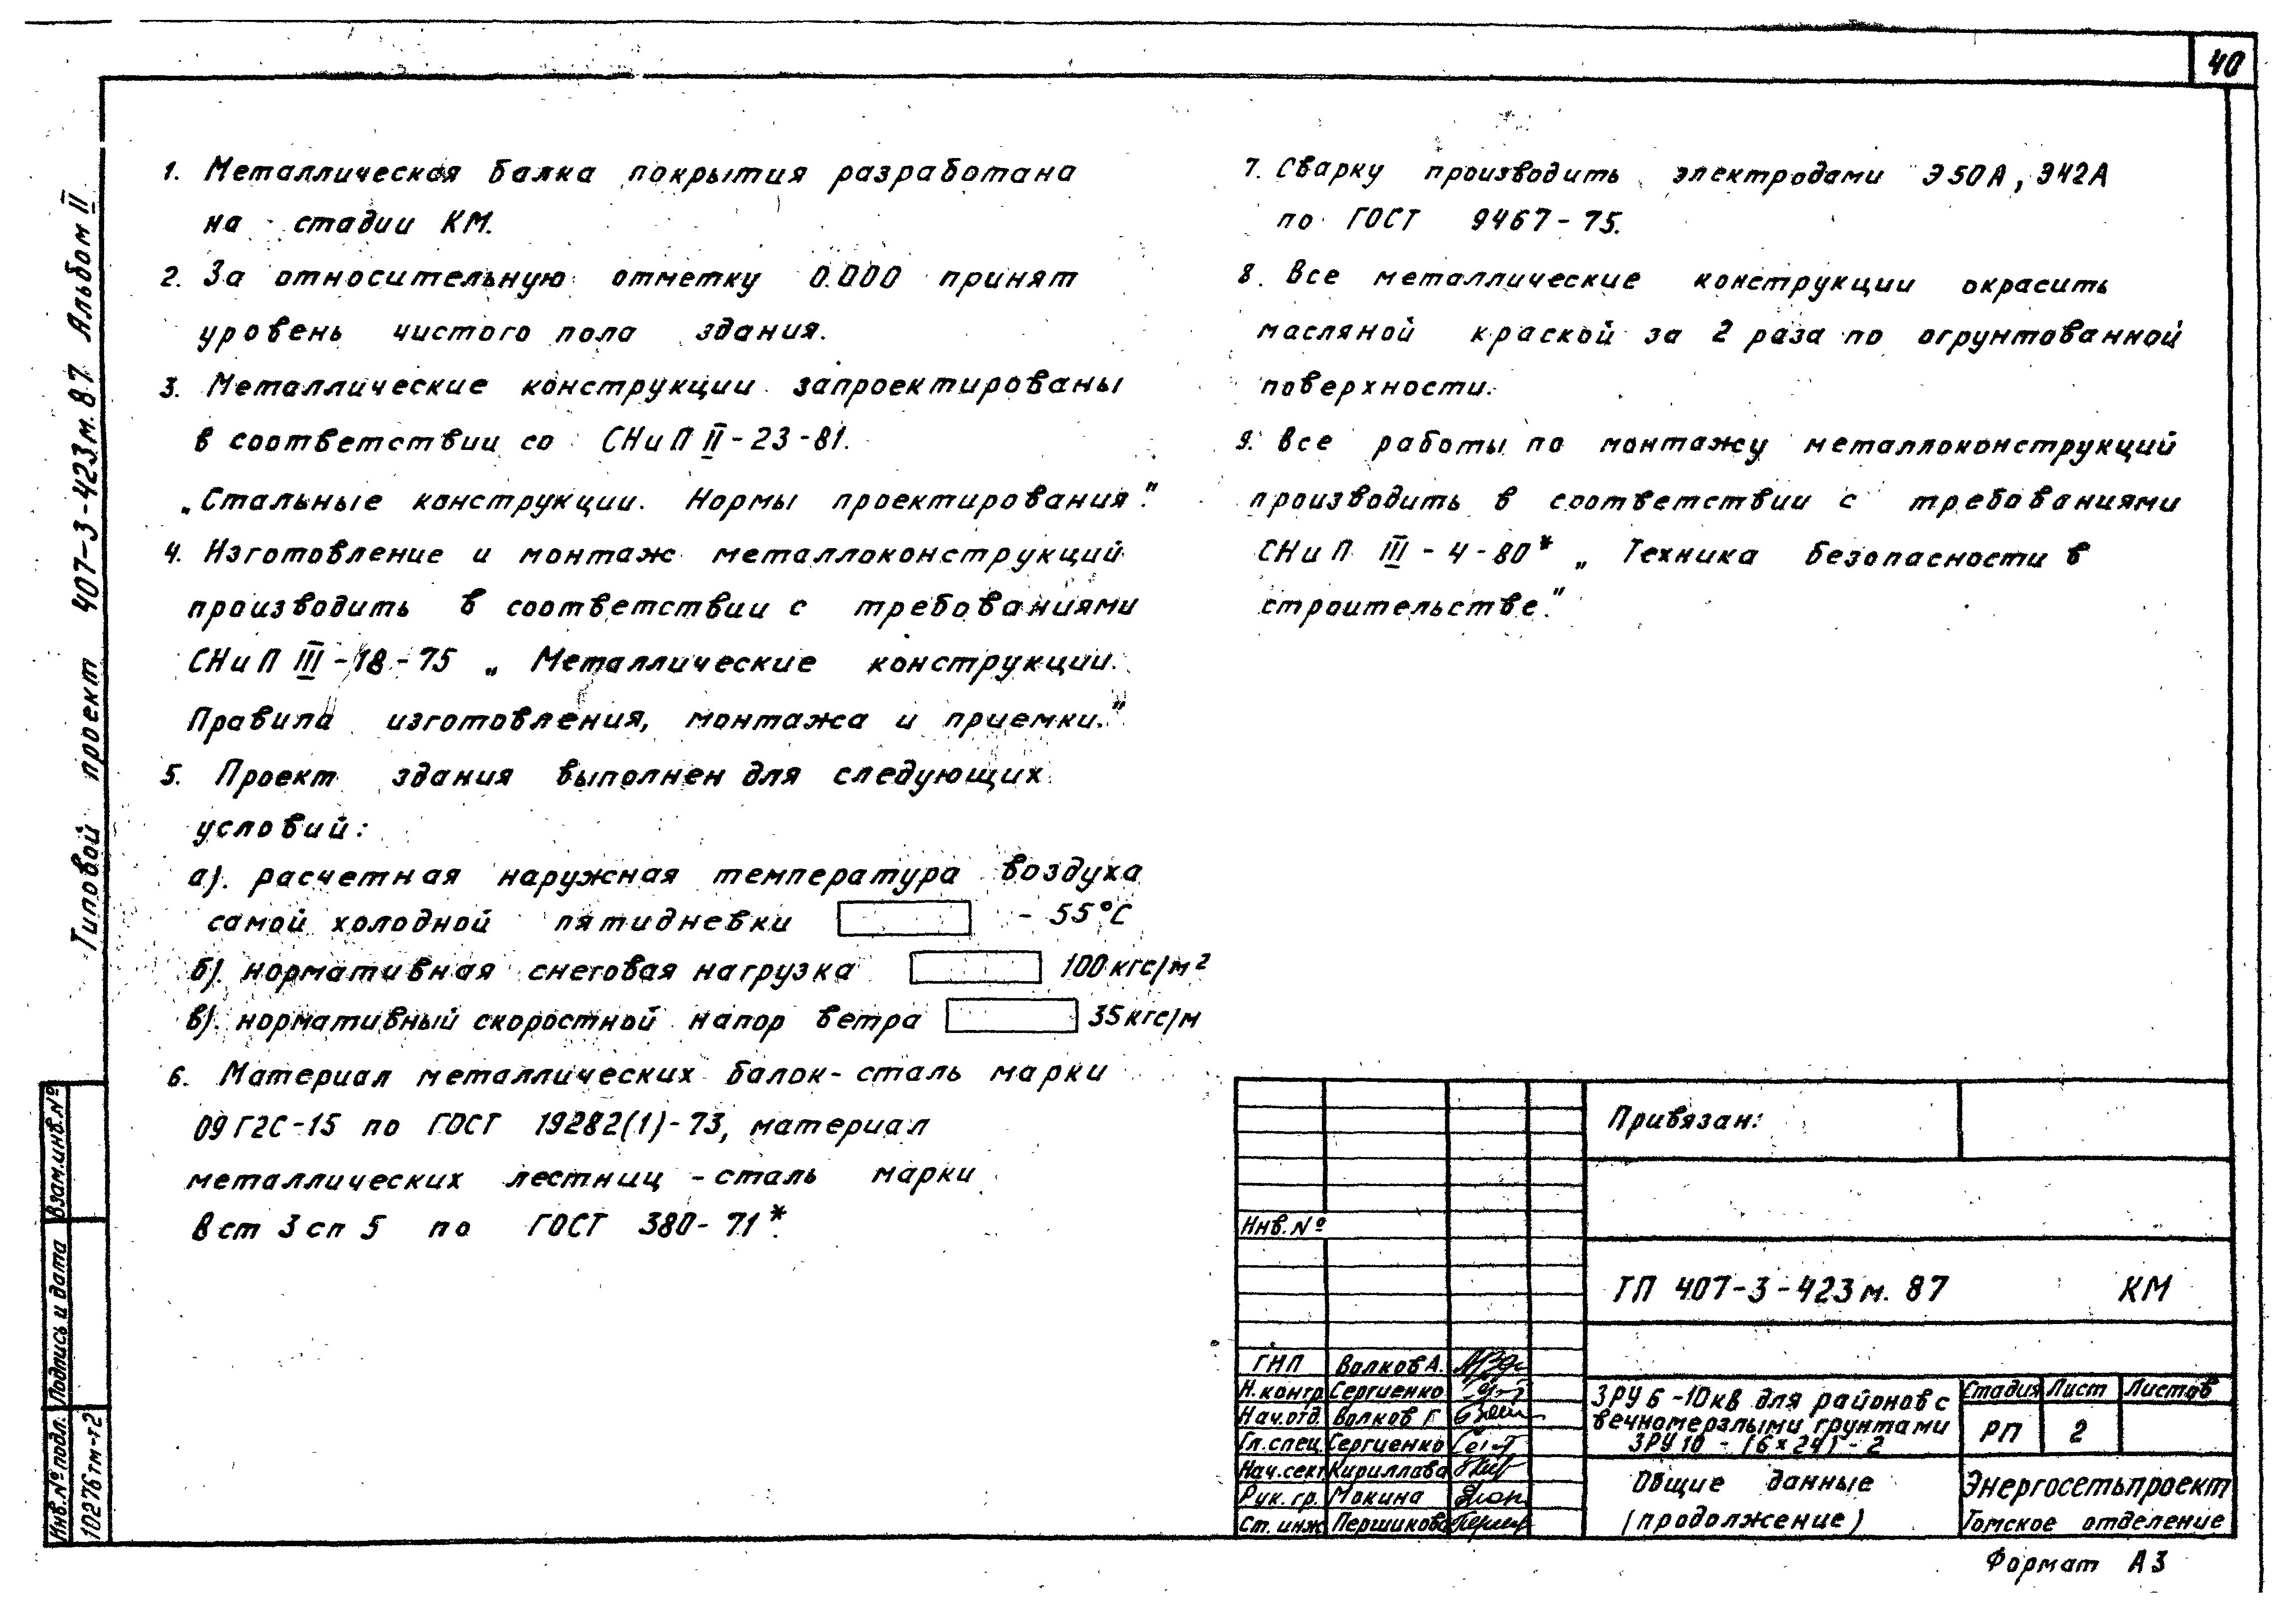 40
1. Металлическая балка покрытия разработана
на стадии КМ.
2. За относительную отметку 0.000 принят
уровень чистого пола здания.
3. Металлические конструкции запроектированы
в соответствии со СНиП II-23-81.
„Стальные конструкции. Нормы проектирования".
4. Изготовление и монтаж металлоконструкций
производить в соответствии с требованиями
СНиП III-18-75 „Металлические конструкции.
Правила изготовления, монтажа и приемки."
5. Проект здания выполнен для следующих
условий:
а). расчетная наружная температура воздуха
самой холодной пятидневки - 55°С
б). нормативная снеговая нагрузка 100 кгс/м²
в). нормативный скоростной напор ветра 35 кгс/м
6. Материал металлических балок - сталь марки
09Г2С-15 по ГОСТ 19282(1)-73, материал
металлических лестниц - сталь марки
Вст 3 сп 5 по ГОСТ 380-71*.
7. Сварку производить электродами Э50А, Э42А
по ГОСТ 9467-75.
8. Все металлические конструкции окрасить
масляной краской за 2 раза по огрунтованной
поверхности.
9. Все работы по монтажу металлоконструкций
производить в соответствии с требованиями
СНиП III-4-80* „Техника безопасности в
строительстве."
Типовой проект 407-3-423м.87 Альбом II
Взам.инв.№
Подпись и дата
Инв.№ подл.
10276тм-т2
Привязан:
Инв.№
ТП 407-3-423м.87 КМ
ГИП Волков А.
Н.контр Сергиенко
Нач.отд. Волков Г
Гл.спец Сергиенко
Нач.сект Кириллова
Рук.гр. Мокина
Ст.инж Першикова
ЗРУ 6-10кв для районов с
вечномерзлыми грунтами
ЗРУ 10-(6×24)-2
Стадия Лист Листов
РП 2
Общие данные
(продолжение)
Энергосетьпроект
Томское отделение
Формат А3